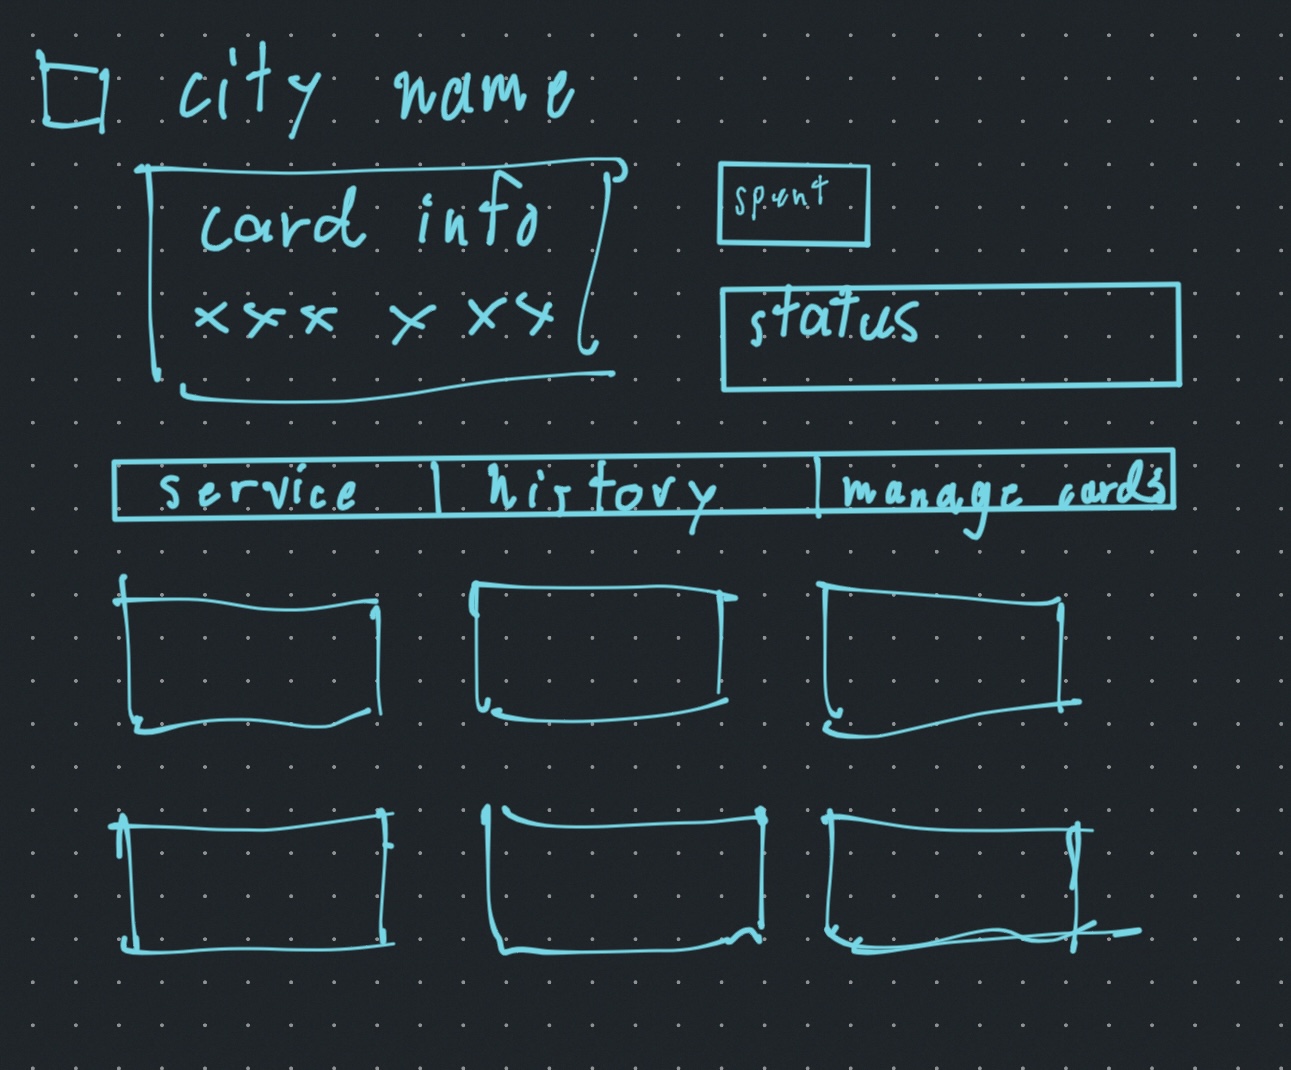 city name
card info
xxx x xx
spent
status
service history manage cards